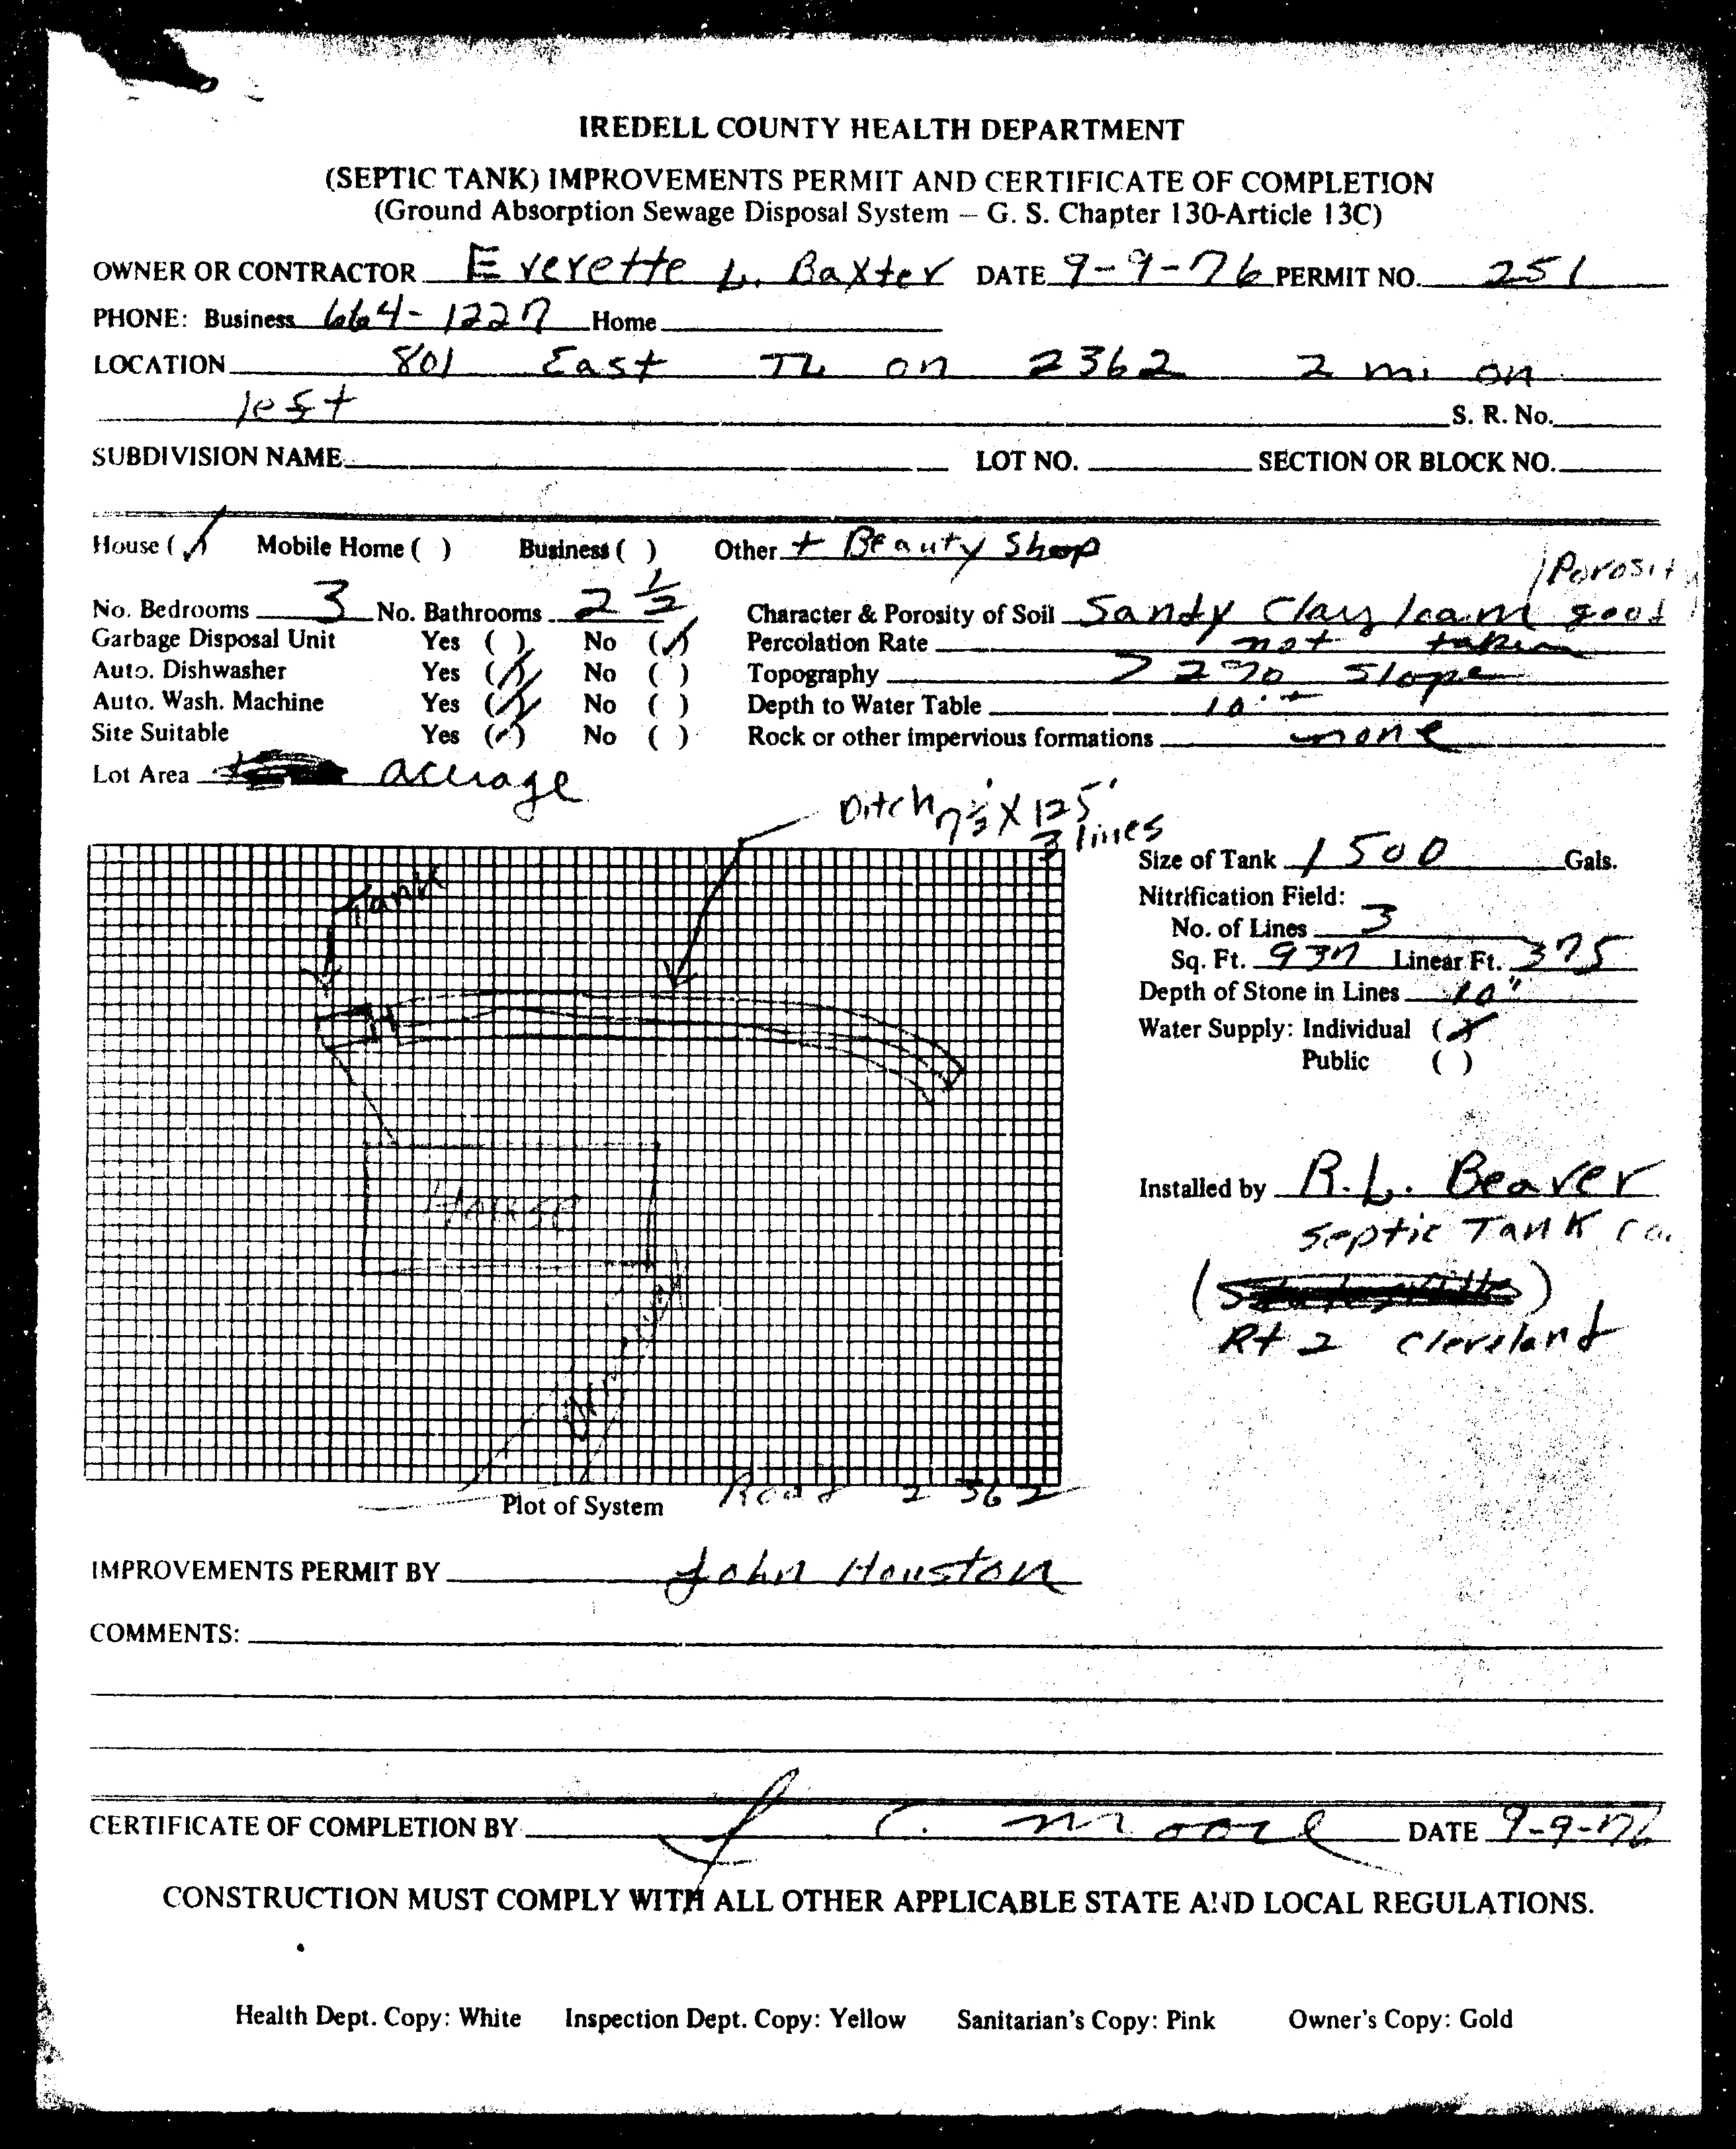 IREDELL COUNTY HEALTH DEPARTMENT
(SEPTIC TANK) IMPROVEMENTS PERMIT AND CERTIFICATE OF COMPLETION
(Ground Absorption Sewage Disposal System — G. S. Chapter 130-Article 13C)
OWNER OR CONTRACTOR Everette L. Baxter DATE 9-9-76 PERMIT NO. 251
PHONE: Business 664-1227 Home
LOCATION 801 East TL on 2362 2 mi on
left S. R. No.
SUBDIVISION NAME LOT NO. SECTION OR BLOCK NO.
House (✓) Mobile Home ( ) Business ( ) Other + Beauty Shop
Porosity
No. Bedrooms 3 No. Bathrooms 2 ½ Character & Porosity of Soil Sandy Clay loam good
Garbage Disposal Unit Yes ( ) No (✓) Percolation Rate not taken
Auto. Dishwasher Yes (✓) No ( ) Topography > 2% Slope
Auto. Wash. Machine Yes (✓) No ( ) Depth to Water Table 10' +
Site Suitable Yes (✓) No ( ) Rock or other impervious formations none
Lot Area acerage
Ditch 7½' X 125'
3 lines
Tank
Size of Tank 1500 Gals.
Nitrification Field:
No. of Lines 3
Sq. Ft. 937 Linear Ft. 375
Depth of Stone in Lines 10"
Water Supply: Individual (✓)
Public ( )
House
Installed by R.L. Beaver
Septic Tank Co.
Rt 2 Cleveland
Driveway
Plot of System Road 2362
IMPROVEMENTS PERMIT BY John Houston
COMMENTS:
CERTIFICATE OF COMPLETION BY J C. Moore DATE 9-9-76
CONSTRUCTION MUST COMPLY WITH ALL OTHER APPLICABLE STATE AND LOCAL REGULATIONS.
Health Dept. Copy: White Inspection Dept. Copy: Yellow Sanitarian's Copy: Pink Owner's Copy: Gold